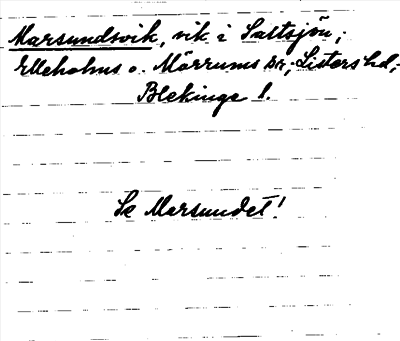 Marsundsvik, vik i Saltsjön,
Elleholms o. Mörrums sn:r, Listers hd,
Blekinge l.
Se Marsundet!